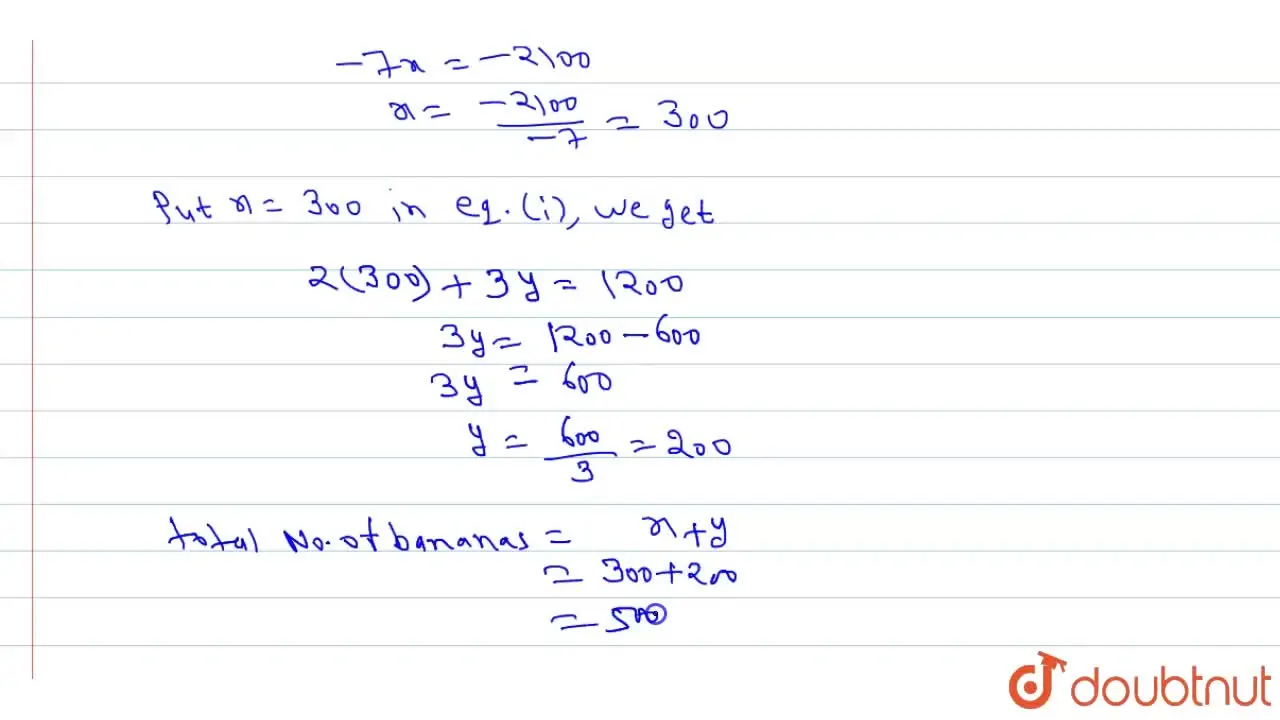 -7x = -2100
x = -2100/-7 = 300
Put x = 300 in eq.(i), we get
2(300) + 3y = 1200
3y = 1200 - 600
3y = 600
y = 600/3 = 200
total No. of bananas = x + y
= 300 + 200
= 500
doubtnut